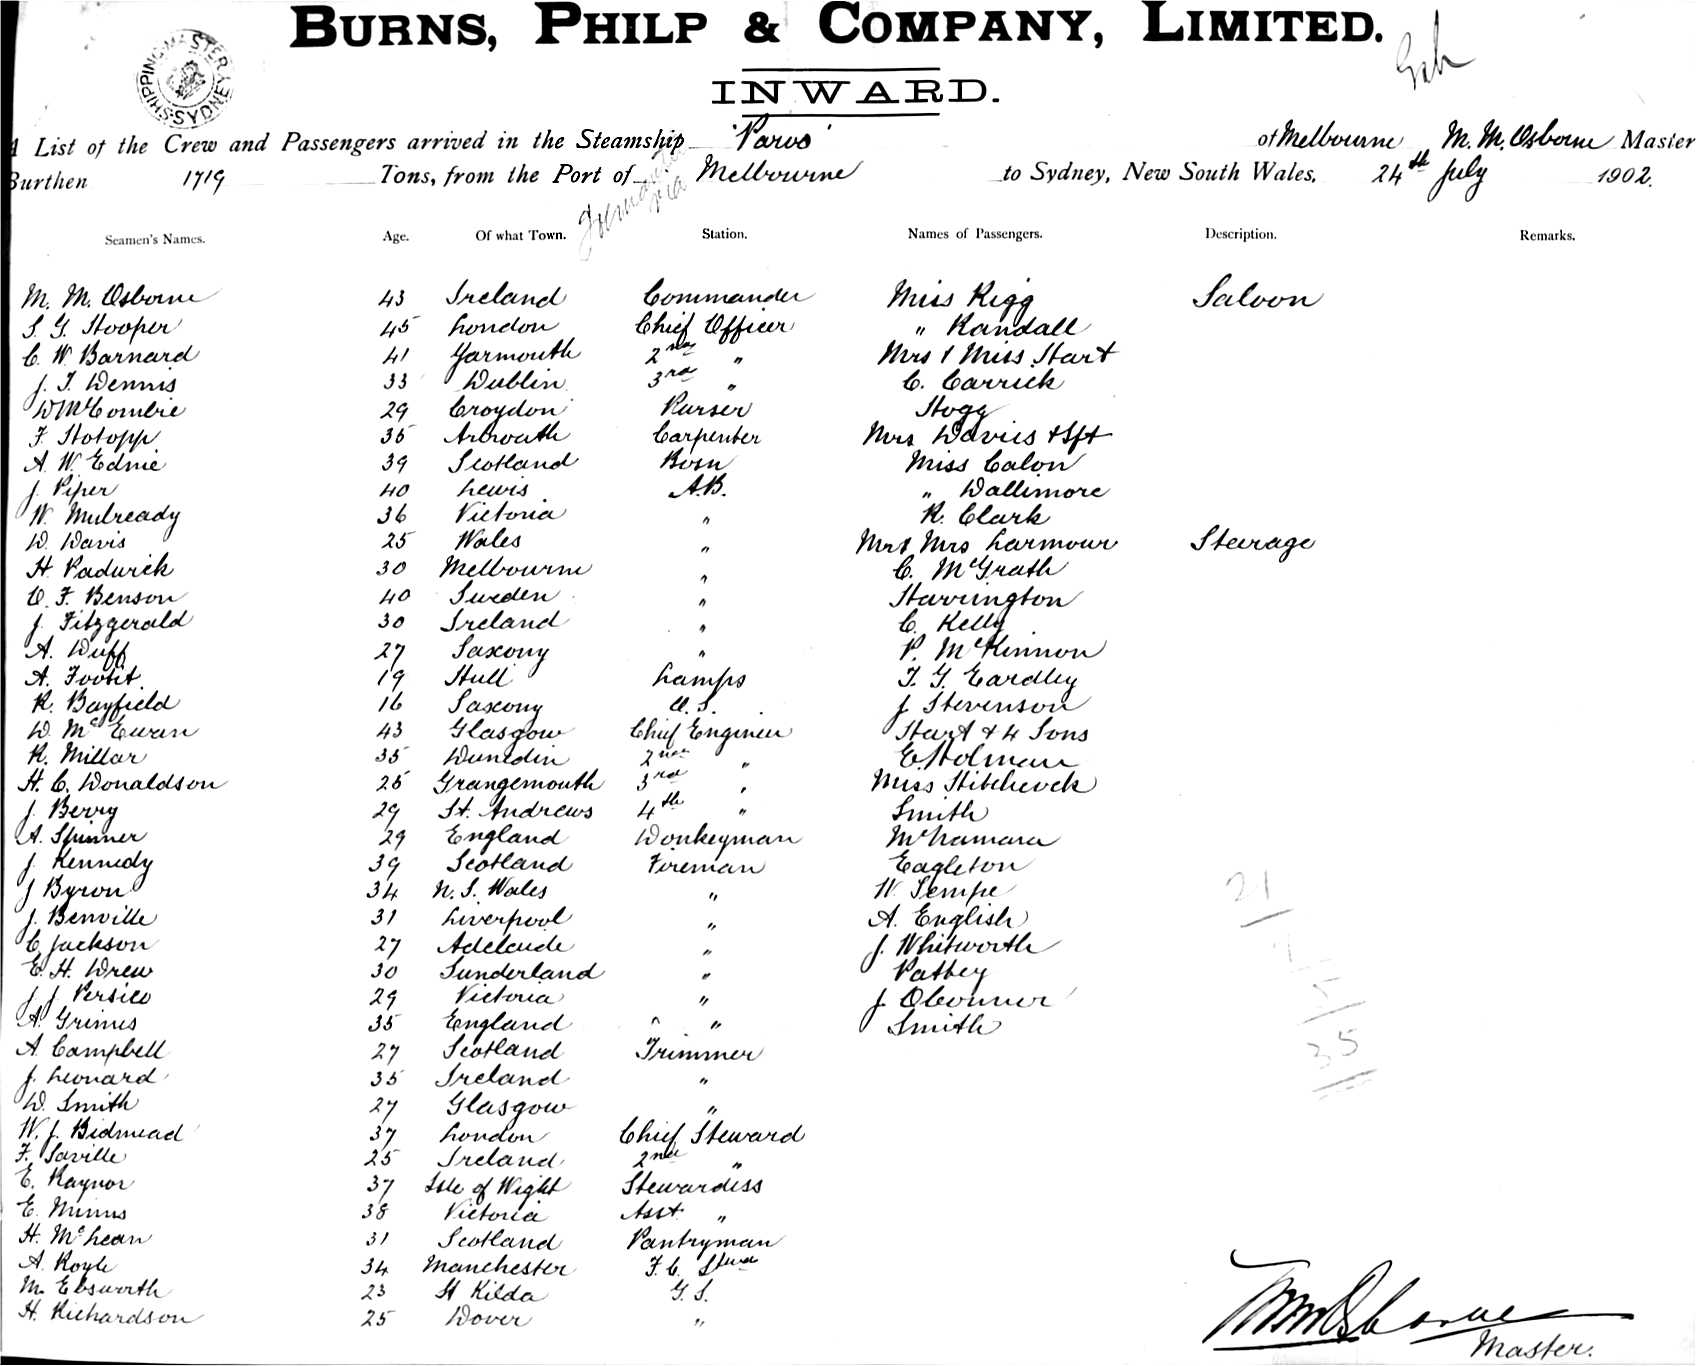 BURNS, PHILP & COMPANY, LIMITED.
SHIPPING MASTER SYDNEY
INWARD.
A List of the Crew and Passengers arrived in the Steamship 'Paroo' of Melbourne M. M. Osborne Master
Burthen 1719 Tons, from the Port of Melbourne to Sydney, New South Wales, 24th July 1902.
Seamen's Names. Age. Of what Town. Station. Names of Passengers. Description. Remarks.
M. M. Osborne 43 Ireland Commander Miss Rigg Saloon
S G Hooper 45 London Chief Officer " Randall
C. W Barnard 41 Yarmouth 2nd " Mrs & Miss Hart
J. T. Dennis 33 Dublin 3rd " C. Carrick
D McCombie 29 Croydon Purser Hogg
F Hotopp 35 Arbroath Carpenter Mrs Davies & Sft
A. W. Ednie 39 Scotland Bosn Miss Calon
J. Piper 40 Lewis A.B. " Dallimore
W. Mulready 36 Victoria " R. Clark
D. Davis 25 Wales " Mr & Mrs Larmour Steerage
H. Padwick 30 Melbourne " C. McGrath
C. F. Benson 40 Sweden " Harrington
J. Fitzgerald 30 Ireland " C. Kelly
A. Duff 27 Saxony " P. McKinnon
A. Footit 19 Hull Lamps T. G. Eardley
R. Bayfield 16 Saxony O.S. J Stevenson
D. McEwan 43 Glasgow Chief Engineer Hart & 4 Sons
R. Millar 35 Dunedin 2nd " E. Holman
H. C. Donaldson 25 Grangemouth 3rd " Miss Hitchcock
J. Berry 29 St. Andrews 4th " Smith
A. Spinner 29 England Donkeyman McNamara
J. Kennedy 39 Scotland Fireman Eagleton
J Byron 34 N. S. Wales " W Sempe
J. Benville 31 Liverpool " A. English
C Jackson 27 Adelaide " J. Whitworth
E. H. Drew 30 Sunderland " Pathey
J J Persico 29 Victoria " J OConnor
A. Grimes 35 England " Smith
A Campbell 27 Scotland Trimmer
J. Leonard 35 Ireland "
D. Smith 27 Glasgow "
W. J. Bidmead 37 London Chief Steward
F. Saville 25 Ireland 2nd "
E. Raynor 37 Isle of Wight Stewardess
E. Minns 38 Victoria Asst "
H. McLean 31 Scotland Pantryman
A. Royle 34 Manchester F. C. Stwd
M. Ebsworth 23 St Kilda G. S.
H. Richardson 25 Dover "
21
35
MMOsborne
Master.